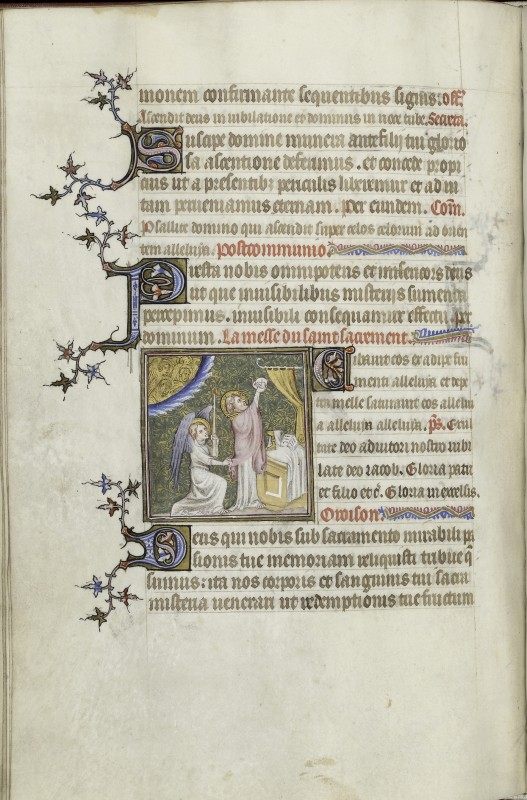 monem confirmante sequentibus signis. off.
Ascendit deus in iubilatione et dominus in uoce tube. Secreta.
Suscipe domine munera que pro filij tui glorio
sa ascentione deferimus. et concede propi
cius ut a presentibz periculis liberemur et ad ui
tam perueniamus eternam. Per eundem. Com.
Psallite domino qui ascendit super celos celorum ad orien
tem alleluia. postcommunio
Presta nobis omnipotens et misericors deus
ut que inuisibilibus misterijs sumenda
percepimus. inuisibili consequamur effectu. per
dominum. La messe du saint sacrement.
Cibauit eos ex adipe fru
menti alleluia et de pe
tra melle saturauit eos allelui
a alleluia alleluia. ps. Exul
tate deo adiutori nostro iubi
late deo iacob. Gloria patri
et filio et c. Gloria in excelsis.
Oroison.
Deus qui nobis sub sacramento mirabili pas
sionis tue memoriam reliquisti tribue qs
sumus: ita nos corporis et sanguinis tui sacra
misteria uenerari ut redemptionis tue fructum